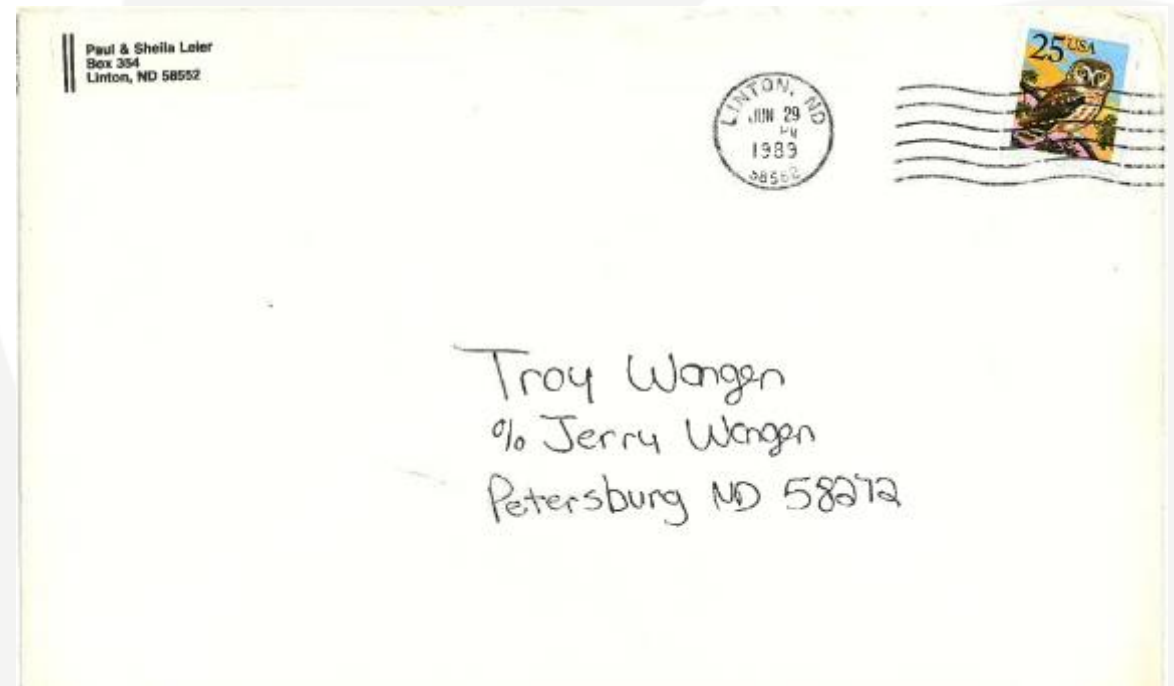 Paul & Sheila Leier
Box 354
Linton, ND 58552
25 USA
LINTON, ND
JUN 29
PM
1989
58552
Troy Wangen
% Jerry Wangen
Petersburg ND 58272